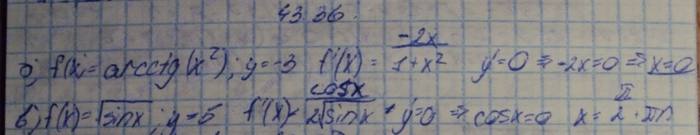 43.36.
б) f(x) = arcctg(x²); y = -3 f'(x) = -2x / 1+x² y' = 0 ⇒ -2x = 0 ⇒ x = 0
в) f(x) = √sinx; y = 5 f'(x) = cosx / 2√sinx · y' = 0 ⇒ cosx = 0 x = π/2 · πn